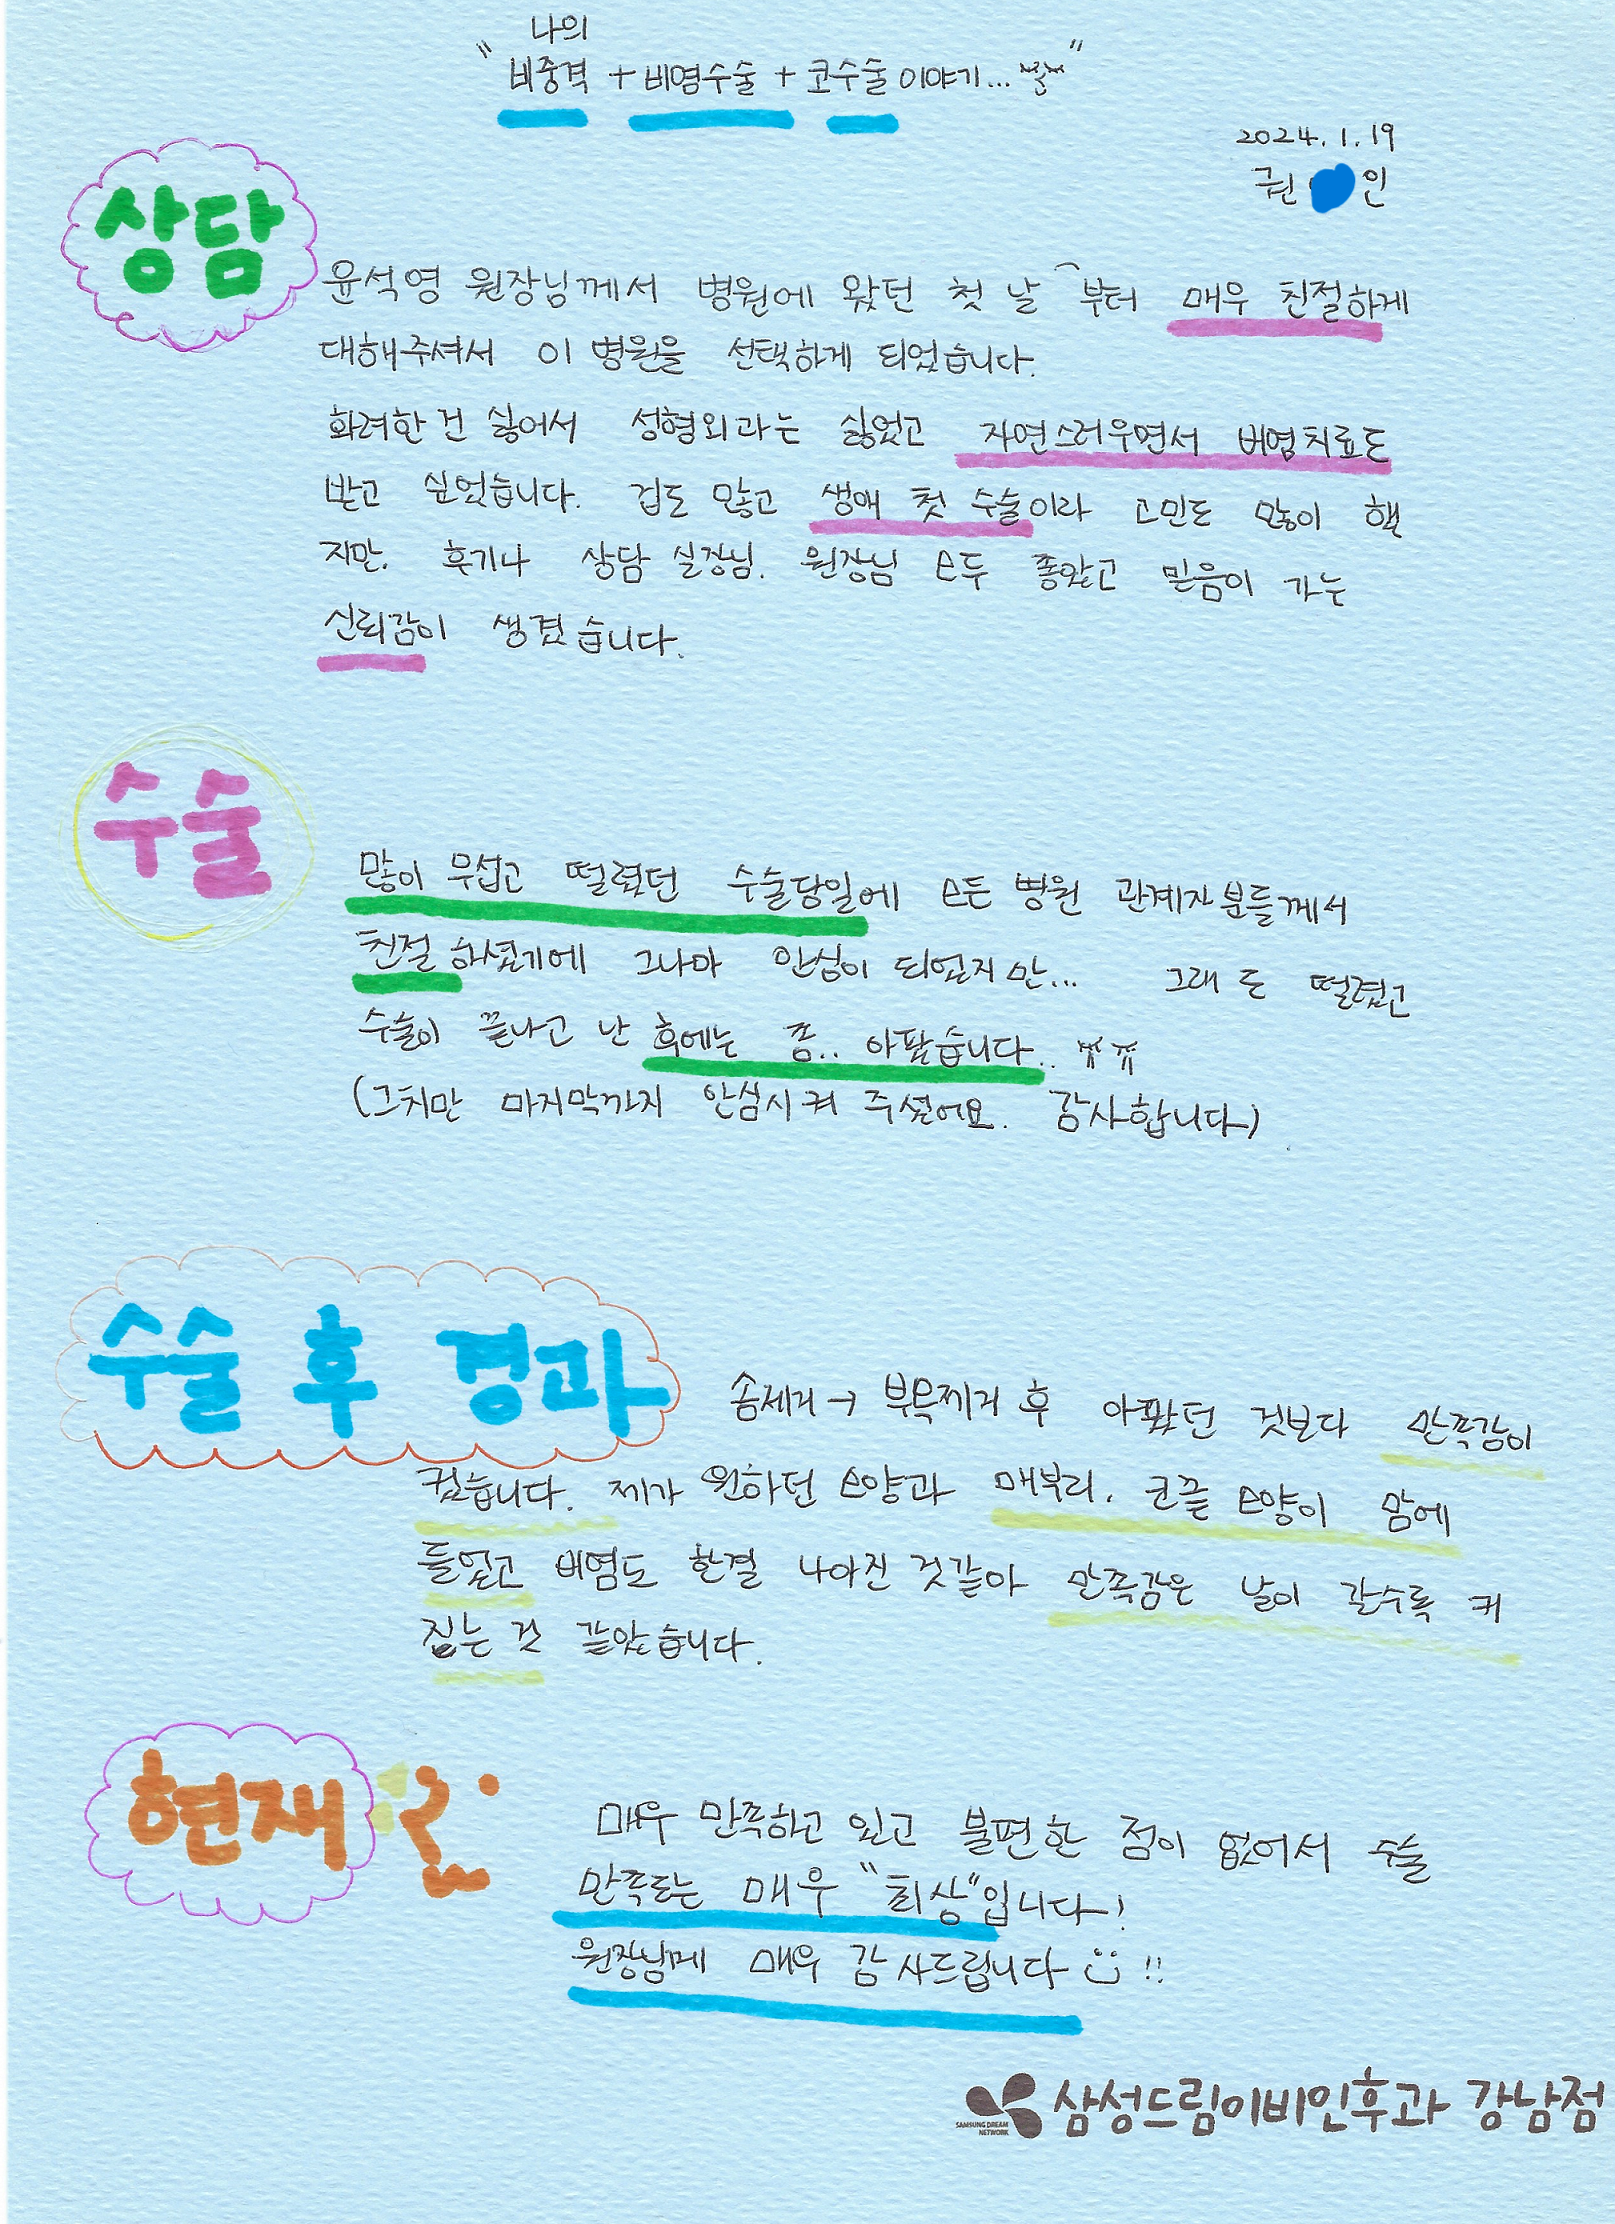 나의
"비중격 + 비염수술 + 코수술 이야기..."
2024. 1. 19
권 인
상담
윤석영 원장님께서 병원에 왔던 첫 날 부터 매우 친절하게
대해주셔서 이 병원을 선택하게 되었습니다.
화려한 건 싫어서 성형외과는 싫었고 자연스러우면서 비염치료도
받고 싶었습니다. 겁도 많고 생애 첫 수술이라 고민도 많이 했
지만, 후기나 상담 실장님, 원장님 모두 좋았고 믿음이 가는
신뢰감이 생겼습니다.
수술
많이 무섭고 떨렸던 수술당일에 모든 병원 관계자분들께서
친절 하셨기에 그나마 안심이 되었지만... 그래도 떨렸고
수술이 끝나고 난 후에는 좀.. 아팠습니다.. ㅠㅠ
(그치만 마지막까지 안심시켜 주셨어요. 감사합니다)
수술 후 경과
솜제거 → 부목제거 후 아팠던 것보다 만족감이
컸습니다. 제가 원하던 모양과 매부리, 코끝 모양이 맘에
들었고 비염도 한결 나아진 것같아 만족감은 날이 갈수록 커
짐는 것 같았습니다.
현재
매우 만족하고 있고 불편한 점이 없어서 수술
만족도는 매우 "최상"입니다!
원장님께 매우 감사드립니다 !!
SAMSUNG DREAM
NETWORK
삼성드림이비인후과 강남점